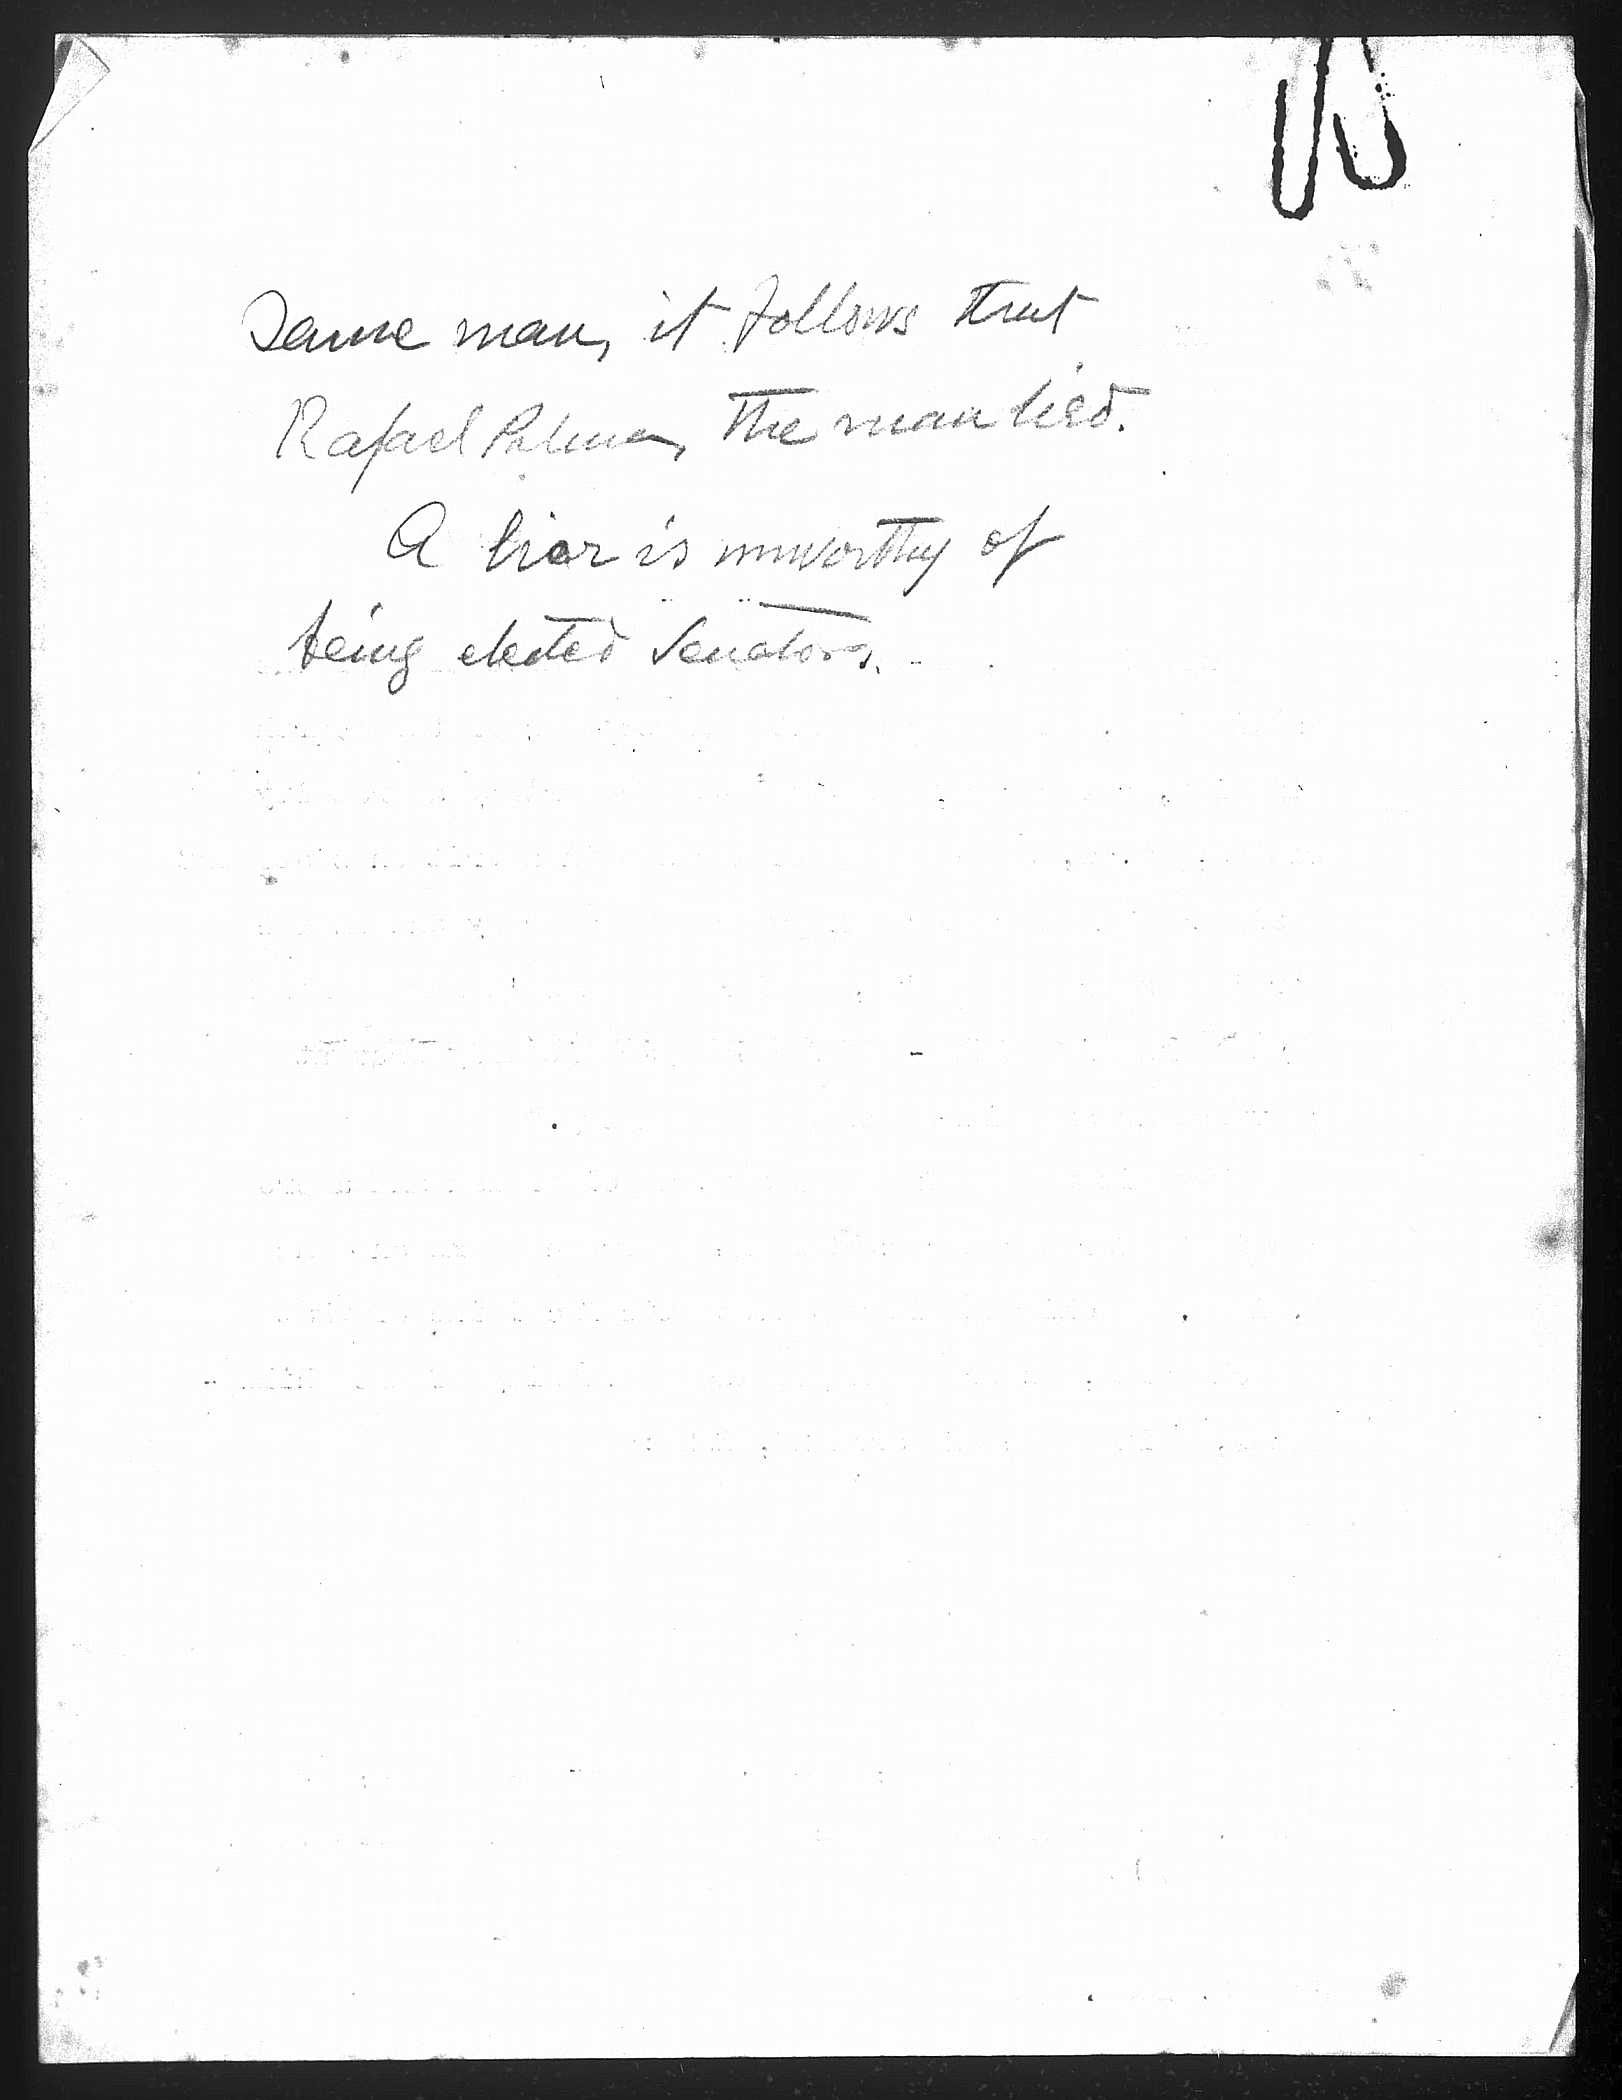 same man, it follows that
Rafael Palma, the man lied.
A liar is unworthy of
being elected Senator.